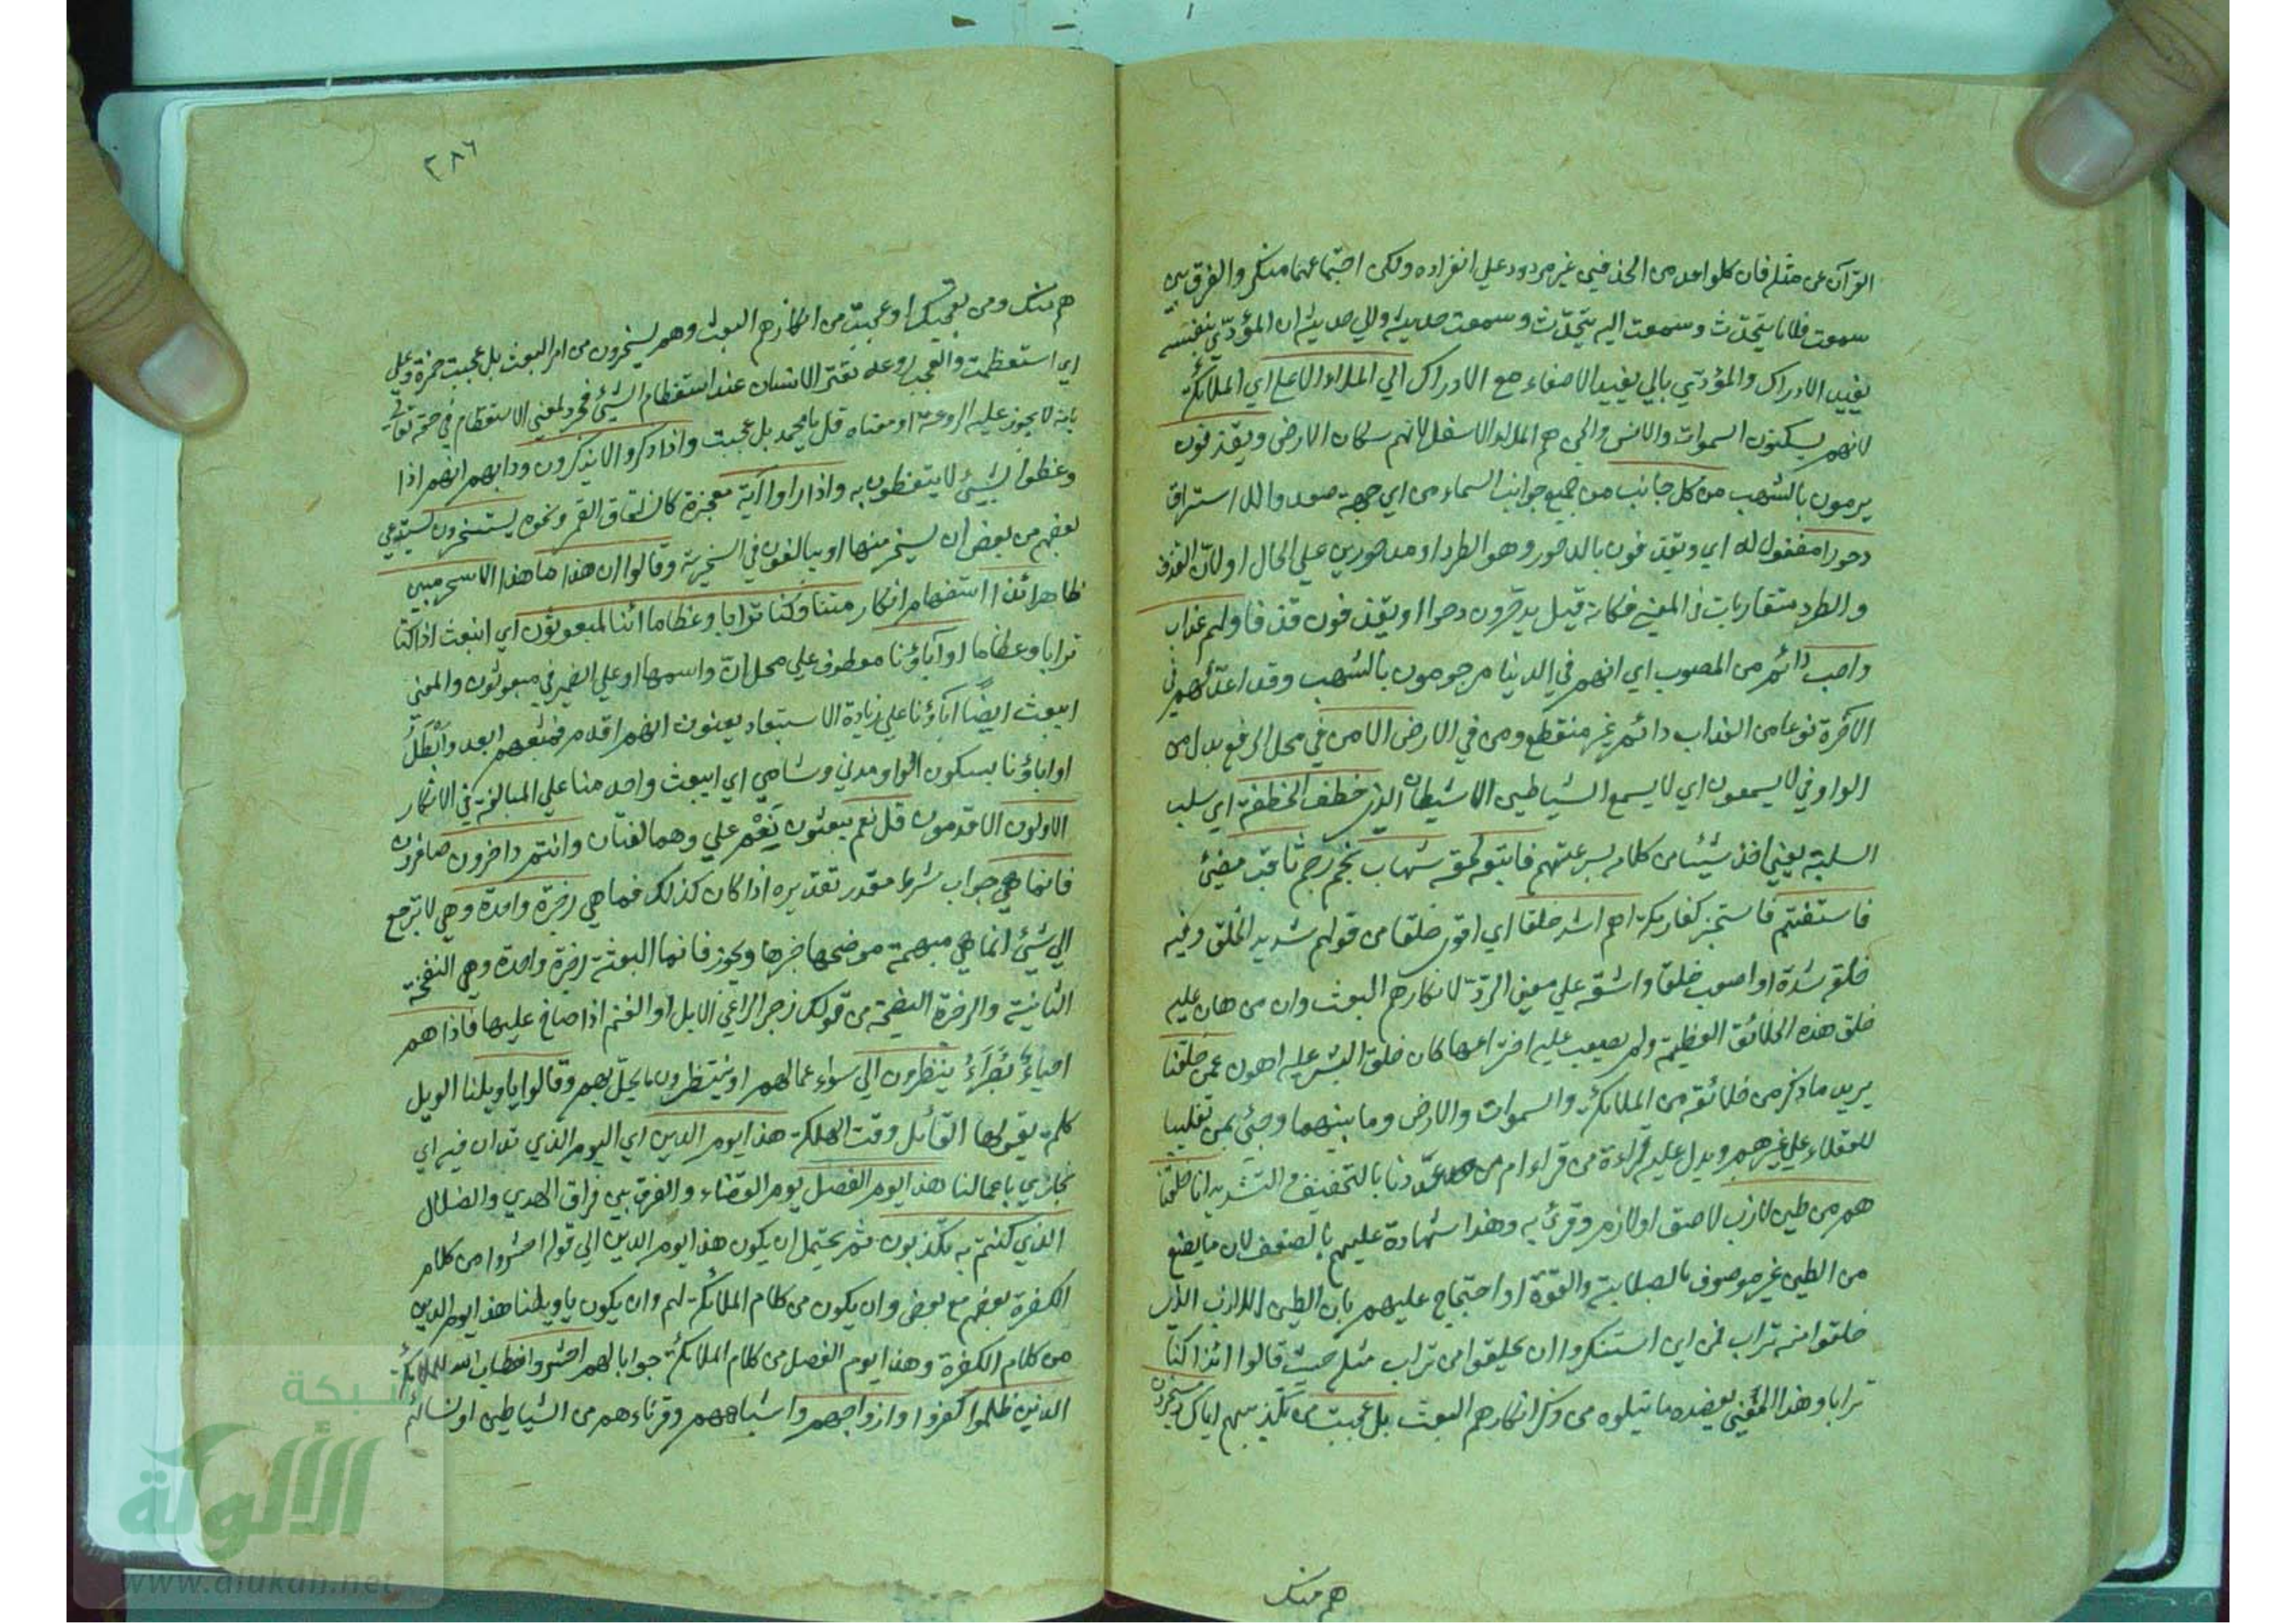 القرآن عن مثله فان كل واحد من الحذفين غير مردود علي انفراده ولكن اجتماعهما منكر والفرق بين
سمعت فلانا يتحدّث وسمعت اليه يتحدّث وسمعت حديثه والي حديثه ان المؤدّي بنفسه
يفيد الادراك والمؤدّي بالي يفيد الاصغاء مع الادراك الي الملاء الاعلي اي الملائكة
لانهم يسكنون السموات والانس والجن هم الملاء الاسفل لانهم سكان الارض ويقذفون
يرمون بالشهب من كل جانب من جميع جوانب السماء من اي جهة صعدوا للاستراق
دحورا مفعول له اي ويقذفون بالدحور وهو الطرد او مدحورين علي الحال او لان القذف
والطرد متقاربات في المعني فكانه قيل يدحرون دحورا او يقذفون قذفا ولهم عذاب
واصب دائم من الوصوب اي انهم في الدنيا مرجومون بالشهب وقد اعدّ لهم في
الآخرة نوعا من العذاب دائم غير منقطع ومن في الارض الا من في محل الرفع بدل من
الواو في لا يسمعون اي لا يسمع الشياطين الا الشيطان الذي خطف الخطفة اي سلب
السلبة يعني اخذ شيئا من كلامهم بسرعة فاتبعه لحقه شهاب نجم رجم ثاقب مضيئ
فاستفتهم فاستخبر كفار مكة اهم اشد خلقا اي اقوي خلقا من قولهم شديد الخلق وفيه
خلقه شدة او اصعب خلقا واشقه علي معني الردّ لانكارهم البعث وان من هان عليه
خلق هذه الخلائق العظيمة ولم يصعب عليه اختراعها كان خلق البشر عليه اهون ام من خلقنا
يريد ما ذكر من خلائقه من الملائكة والسموات والارض وما بينهما وجيئ بمن تغليبا
للعقلاء علي غيرهم ويدل عليه قراءة من قراء ام من عددنا بالتخفيف والتشديد انا خلقنا
هم من طين لازب لاصق او لازم وقرئ به وهذا شهادة عليهم بالضعف لان ما يصنع
من الطين غير موصوف بالصلابة والقوّة او احتجاج عليهم بان الطين اللازب الذي
خلقوا منه تراب فمن اين استنكروا ان يخلقوا من تراب مثله حيث قالوا ائذا كنا
ترابا وهذا المعني يعضده ما يتلوه من ذكر انكارهم البعث بل عجبت من تكذيبهم اياك ويسخرون
هم منك
٣٨٦
هم منك ومن تعجبك او عجبت من انكارهم البعث وهم يسخرون من امر البعث بل عجبت حمزة وعلي
اي استعظمت والعجب روعة تعتري الانسان عند استعظام الشيئ فجرد لمعني الاستعظام في حقه تعالي
لانه لا يجوز عليه الروعة او معناه قل يا محمد بل عجبت واذا ذكروا لا يذكرون ودابهم انهم اذا
وعظوا بشيئ لا يتعظون به واذا راوا آية معجزة كانشقاق القمر ونحوه يستسخرون يستدعي
بعضهم من بعض ان يسخر منها او يبالغون في السخرية وقالوا ان هذا ما هذا الا سحر مبين
ظاهر ائذا استفهام انكار متنا وكنا ترابا وعظاما ائنا لمبعوثون اي انبعث اذا كنا
ترابا وعظاما او آباؤنا معطوف علي محل انّ واسمها او علي الضمير في مبعوثون والمعني
ايبعث ايضًا آباؤنا علي زيادة الاستبعاد يعنون انهم اقدم فبعثهم ابعد وابطل
او اباؤنا بسكون الواو مدني وشامي اي ايبعث واحد منا علي المبالغة في الانكار
الاولون الاقدمون قل نعم تبعثون نَعِم علي وهما لغتان وانتم داخرون صاغرون
فانما هي جواب شرط مقدر تقديره اذا كان كذلك فما هي زجرة واحدة وهي لا ترجع
الي شيئ انما هي مبهمة موضحها خبرها ويجوز فانما البعثة زجرة واحدة وهي النفخة
الثانية والزجرة الصيحة من قولك زجر الراعي الابل او الغنم اذا صاح عليها فاذا هم
احياء بُصَرَاءُ ينظرون الي سوء اعمالهم او ينتظرون ما يحلّ بهم وقالوا يا ويلنا الويل
كلمة يقولها القائل وقت الهلكة هذا يوم الدين اي اليوم الذي ندان فيه اي
نجازي باعمالنا هذا يوم الفصل يوم القضاء والفرق بين فراق الهدي والضلال
الذي كنتم به تكذبون ثم يحتمل ان يكون هذا يوم الدين الي قوله احشروا من كلام
الكفرة بعضهم مع بعض وان يكون من كلام الملائكة لهم وان يكون يا ويلنا هذا يوم الدين
من كلام الكفرة وهذا يوم الفصل من كلام الملائكة جوابا لهم احشروا خطاب الله للملائكة
الذين ظلموا كفروا وازواجهم واشباههم وقرناءهم من الشياطين او نسائهم
شبكة
الألوكة
www.alukah.net